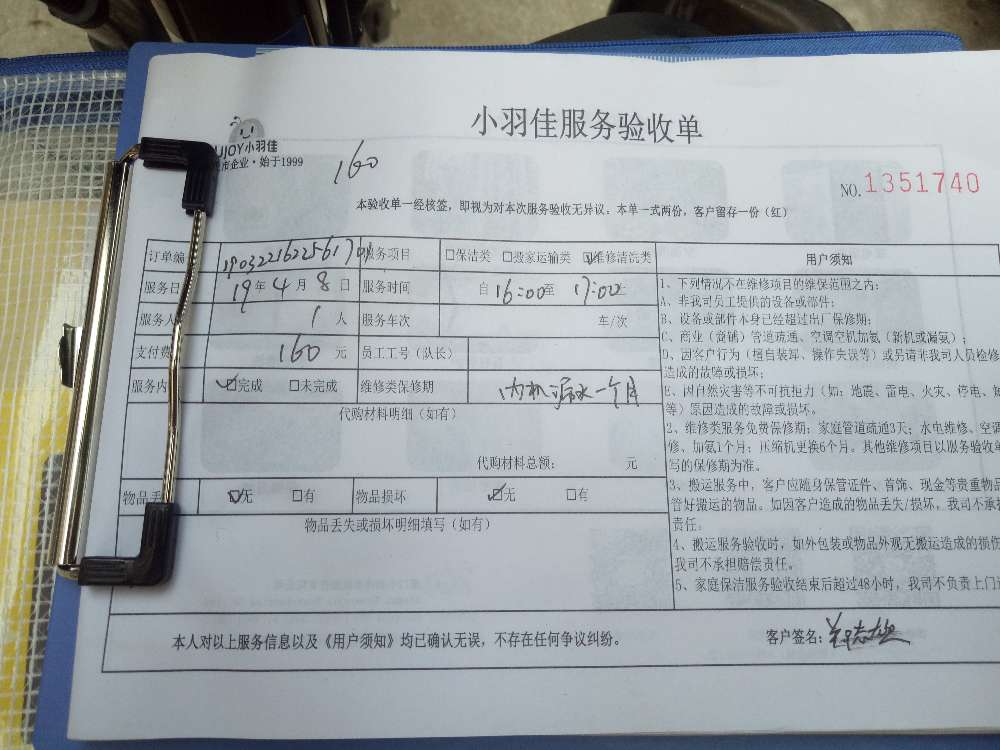 小羽佳服务验收单
UJOY小羽佳
企业·始于1999
160
NO.1351740
本验收单一经核签，即视为对本次服务验收无异议；本单一式两份，客户留存一份（红）
订单编 服务项目 □保洁类 □搬家运输类 ☑维修清洗类 用户须知
服务日 19年4月8日 服务时间 自16:00至17:00止
服务人 1人 服务车次 车/次
支付费 160元 员工工号（队长）
服务内 ☑完成 □未完成 维修类保修期 内机漏水一个月
代购材料明细（如有）
代购材料总额： 元
物品丢 ☑无 □有 物品损坏 ☑无 □有
物品丢失或损坏明细填写（如有）
1、下列情况不在维修项目的维保范围之内：
A、非我司员工提供的设备或部件；
B、设备或部件本身已经超过出厂保修期；
C、商业（商铺）管道疏通、空调空机加氨（新机或漏氨）；
D、因客户行为（擅自装卸、操作失误等）或另请非我司人员检修
造成的故障或损坏；
E、因自然灾害等不可抗拒力（如：地震、雷电、火灾、停电、
等）原因造成的故障或损坏。
2、维修类服务免费保修期：家庭管道疏通3天；水电维修、空调
修、加氨1个月；压缩机更换6个月。其他维修项目以服务验收单
写的保修期为准。
3、搬运服务中，客户应随身保管证件、首饰、现金等贵重物品
管好搬运的物品。如因客户造成的物品丢失/损坏，我司不承担
责任。
4、搬运服务验收时，如外包装或物品外观无搬运造成的损伤
我司不承担赔偿责任。
5、家庭保洁服务验收结束后超过48小时，我司不负责上门
本人对以上服务信息以及《用户须知》均已确认无误，不存在任何争议纠纷。
客户签名：